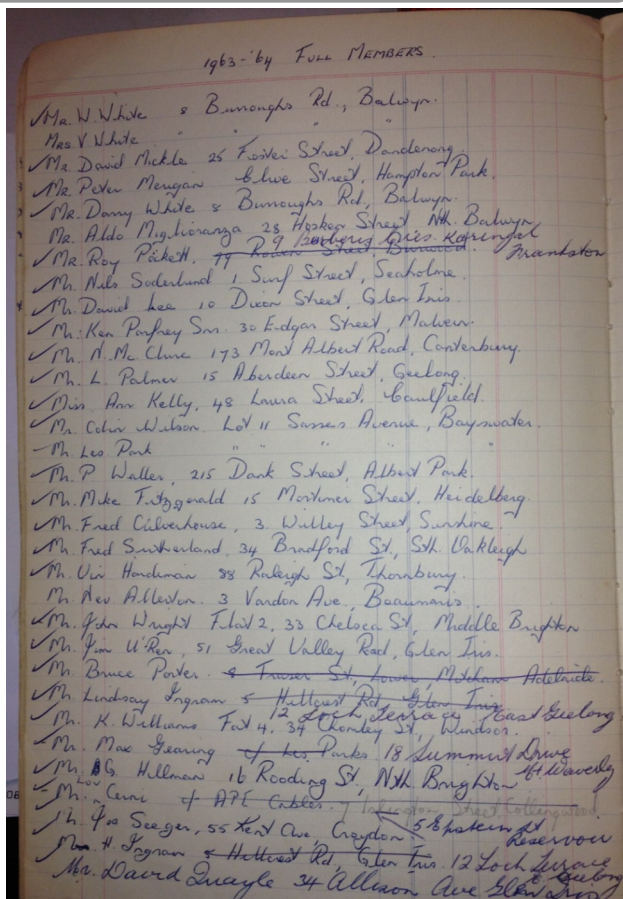 1963-'64 FULL MEMBERS.
✓Mr. W. White 8 Burroughs Rd., Balwyn.
Mrs V White " " " "
✓Mr. David Mickle 25 Foster Street, Dandenong.
✓Mr. Peter Merigan Clive Street, Hampton Park.
✓Mr. Danny White 8 Burroughs Rd, Balwyn.
Mr. Aldo Miglioranza 28 Hosken Street Nth. Balwyn
9 Cres. Karingal
✓Mr. Roy Pickett, 19 Street, Burwood. Frankston
Mr. Nils Soderlund 1 Surf Street, Seaholme.
✓Mr. David Lee 10 Dixon Street, Glen Iris.
✓Mr. Ken Parfrey Snr. 30 Edgar Street, Malvern.
✓Mr. N. Mc Clure 173 Mont Albert Road, Canterbury.
✓Mr. L. Palmer 15 Aberdeen Street, Geelong.
✓Miss Ann Kelly, 48 Laura Street, Caulfield.
✓Mr. Colin Wilson Lot 11 Sasses Avenue, Bayswater.
- Mr. Les Park " " " "
✓Mr. P Waller, 215 Dank Street, Albert Park.
✓Mr. Mike Fitzgerald 15 Mortimer Street, Heidelberg.
✓Mr. Fred Culverhouse, 3 Willey Street, Sunshine.
✓Mr. Fred Sutherland, 34 Bradford St, Sth. Oakleigh
✓Mr. Viv Hardiman 88 Raleigh St, Thornbury.
Mr. Nev Allerton. 3 Vardon Ave, Beaumaris.
✓Mr. John Wright Flat 2, 33 Chelsea St, Middle Brighton
✓Mr. Jim U'Ren, 51 Great Valley Road, Glen Iris.
✓Mr. Bruce Porter. 8 Fraser St, Lower Mitcham Adelaide.
✓Mr. Lindsay Ingram 5 Hillcrest Rd, Glen Iris
12 Loch Terrace East Geelong
✓Mr. K. Williams Flat 4, 34 Chomley St, Windsor.
✓Mr. Max Gearing c/ Les Parks 18 Summit Drive
Mt Waverly
✓Mr. G Hillman 16 Rooding St, Nth Brighton
- Mr. Lou Cerni c/ APE Cables. Street Collingwood
5 Epstein St
Reservoir
✓Mr. Jos Seeger, 55 Kent Ave, Croydon
✓Mr. H. Ingram 5 Hillcrest Rd, Glen Iris. 12 Loch Terrace
E Geelong
Mr. David Quayle 34 Allison Ave Glen Iris